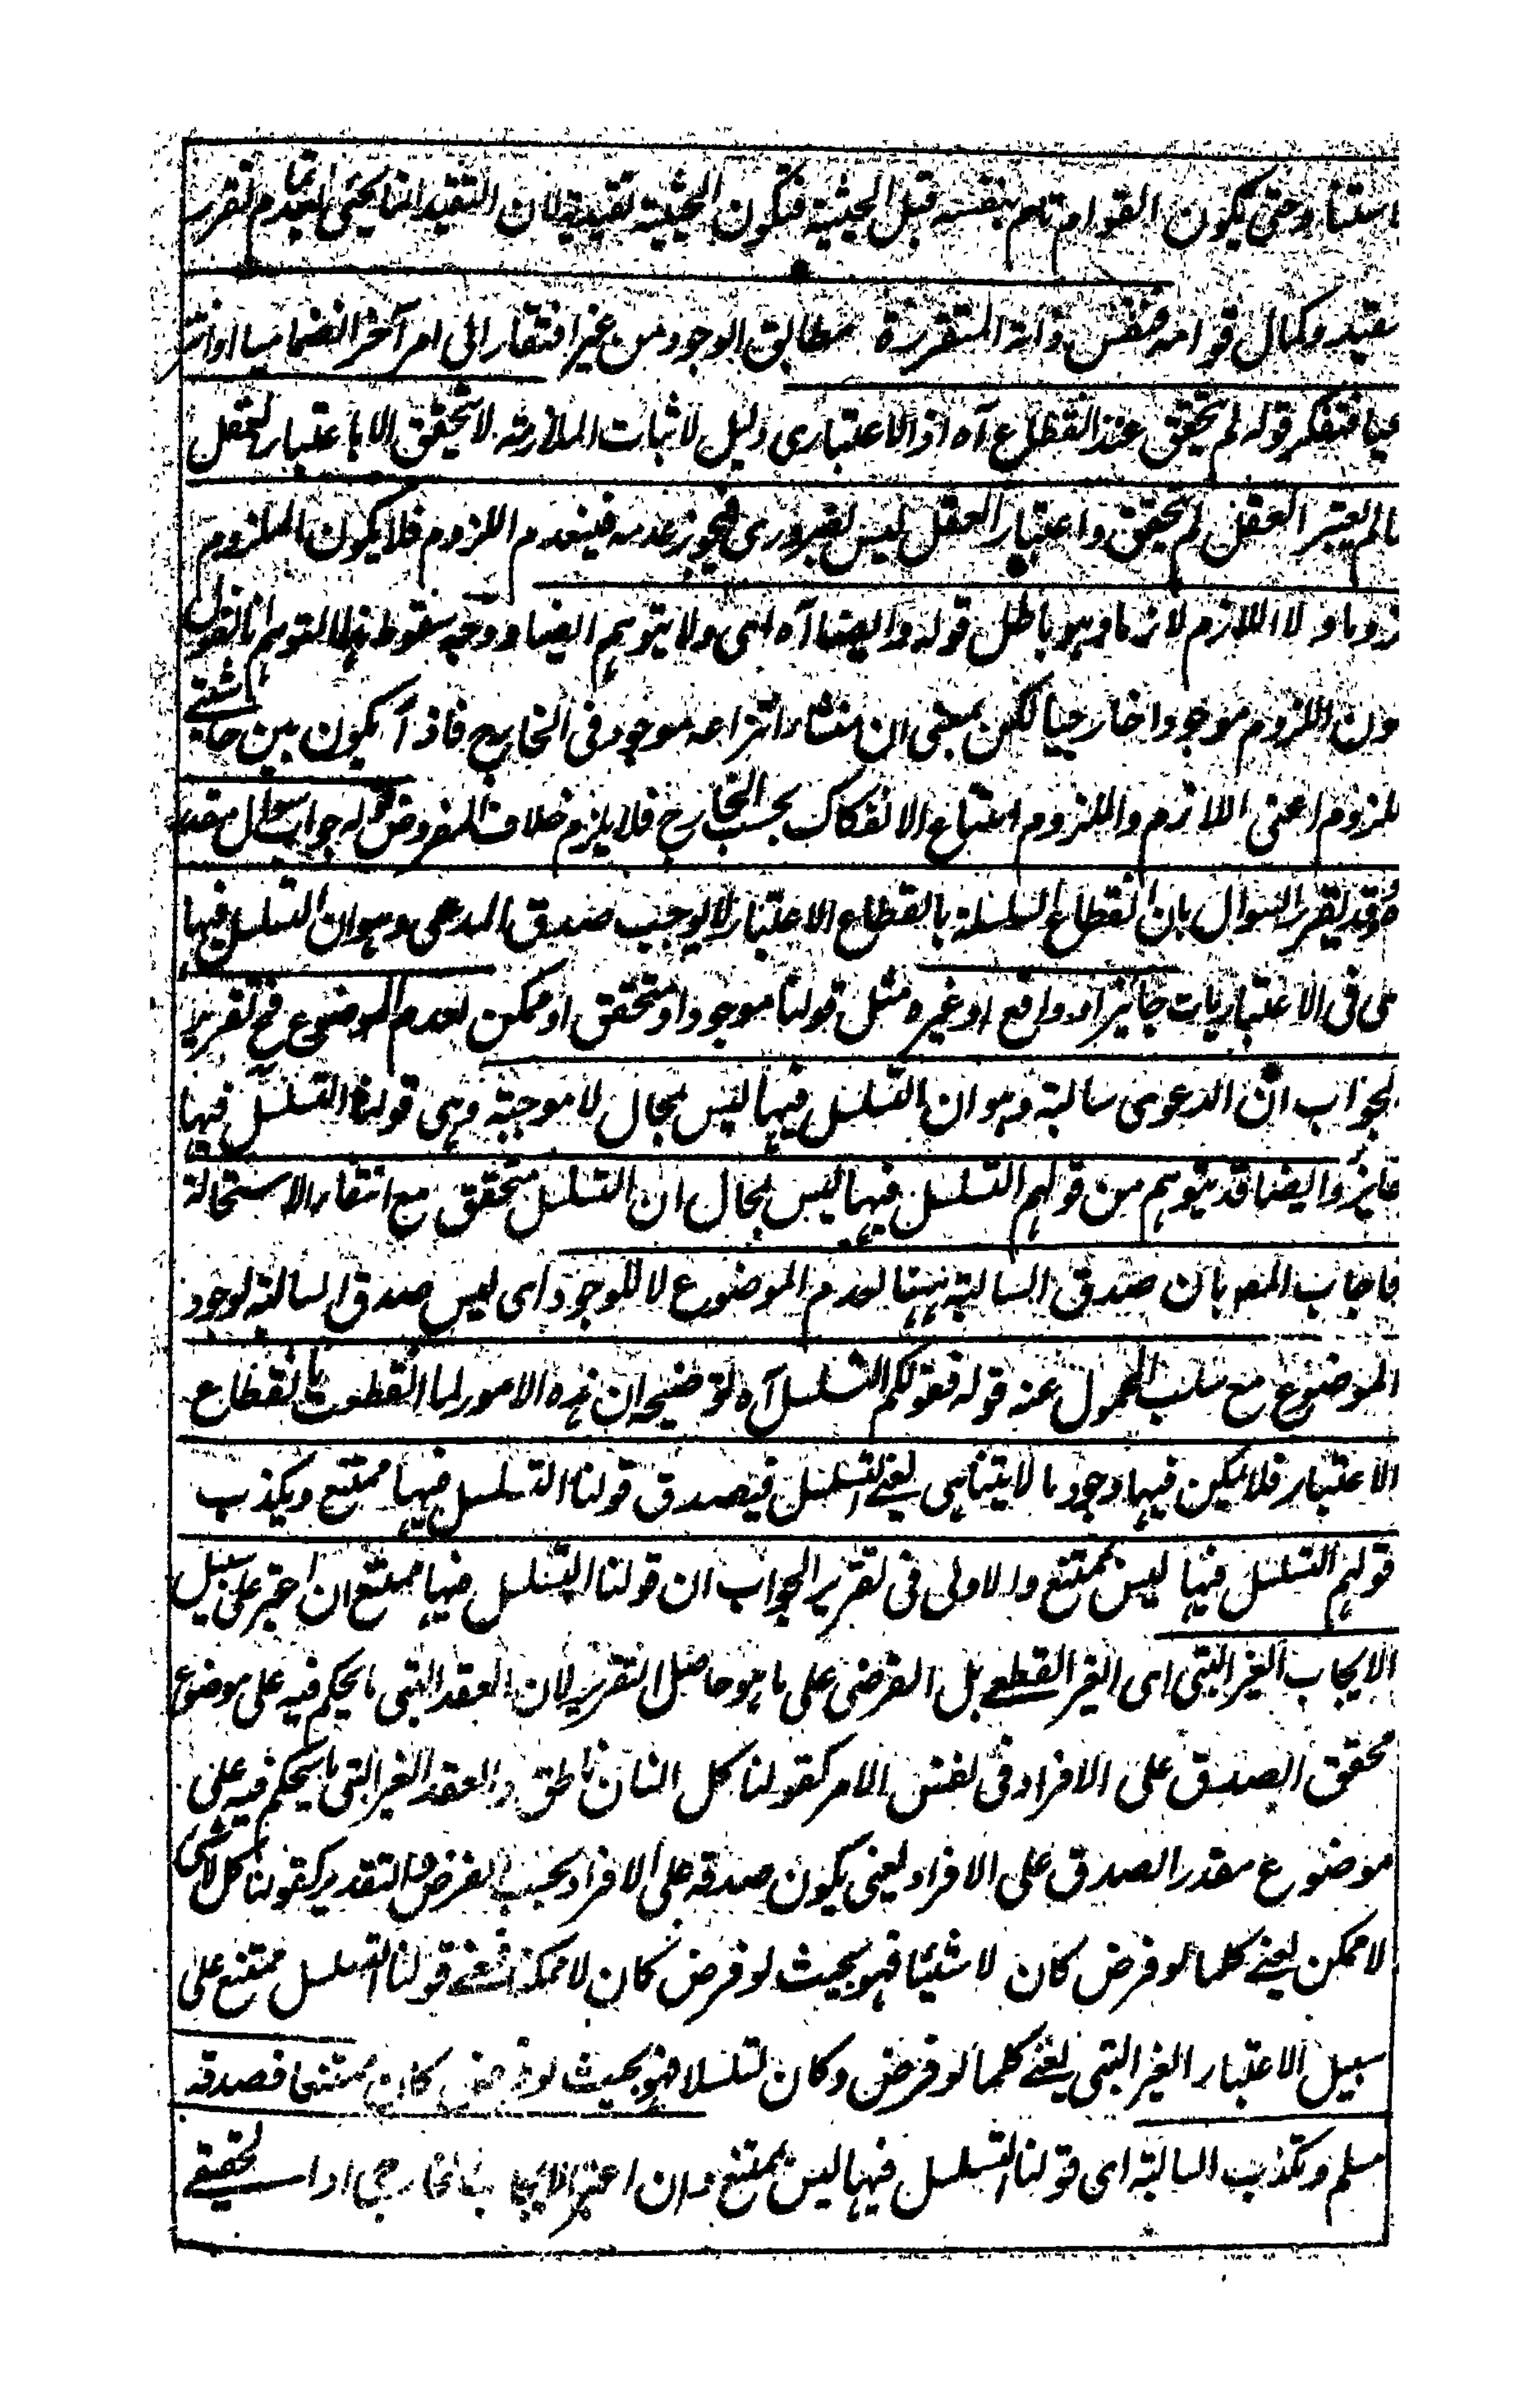 استناد حتى يكون القوام تام بنفسه قبل الحيثية فتكون الحيثية تقييدية لان التقييد انما يجئ بعد تمام تقرر
مقيد وكمال قوامه فنفس ذاته المتقررة مطابق الوجود من غير افتقار الى امر آخر انضماميا او انتز
عيا فتفكر قوله لم يتحقق عند انقطاع آه اذ الاعتبارى دليل لاثبات الملازمة لا يتحقق الا باعتبار العقل
مالم يعتبر العقل لم يتحقق واعتبار العقل ليس بضرورى فيجوز عدمه فينعدم اللزوم فلا يكون الملزوم
زوما ولا اللازم لازما وهو باطل قوله وايضا آه اى ولا يتوهم ايضا ووجه سقوط هذا التوهم انا نقول
ون اللزوم موجودا خارجيا لكن بمعنى ان منشاء انتزاعه موجود فى الخارج فاذا يكون بين حاشيتى
للزوم اعنى اللازم والملزوم امتناع الانفكاك بحسب الخارج فلا يلزم خلاف المفروض قوله جواب سوال مقد
ه وقد يقرر السوال بان انقطاع السلسلة بانقطاع الاعتبار لا يوجب صدق المدعى وهو ان التسلسل فيها
ى فى الاعتباريات جايز او واقع او غيره مثل قولنا موجود او متحقق او ممكن لعدم الموضوع فح تقرير
لجواب ان الدعوى سالبة وهو ان التسلسل فيها ليس بمحال لا موجبة وهى قولنا التسلسل فيها
جايز وايضا قد يتوهم من قولهم التسلسل فيها ليس بمحال ان التسلسل متحقق مع انتفاء الاستحالة
فاجاب المص بان صدق السالبة ههنا لعدم الموضوع لا للوجود اى ليس صدق السالبة لوجود
الموضوع مع سلب المحمول عنه قوله فقولكم التسلسل آه توضيحه ان هذه الامور لما انقطعت بانقطاع
الاعتبار فلا يمكن فيها وجود ما لا يتناهى يعنى التسلسل فيصدق قولنا التسلسل فيها ممتنع ويكذب
قولهم التسلسل فيها ليس بممتنع والاولى فى تقرير الجواب ان قولنا التسلسل فيها ممتنع ان اخبر على سبيل
الايجاب الغير البتى اى الغير القطعى بل الفرضى على ما هو حاصل التقرير لان العقد البتى ما يحكم فيه على موضوع
محقق الصدق على الافراد فى نفس الامر كقولنا كل انسان ناطق والعقد الغير البتى ما يحكم فيه على
موضوع مقدر الصدق على الافراد يعنى يكون صدقه على الافراد بحسب الفرض والتقدير كقولنا كل لاشئ
لا ممكن يعنى كلما لو فرض كان لا شيئا فهو بحيث لو فرض كان لا ممكنا فمعنى قولنا التسلسل ممتنع على
سبيل الاعتبار الغير البتى يعنى كلما لو فرض وكان تسلسلا فهو بحيث لو فرض كان ممتنعا فصدقه
مسلم وتكذب السالبة اى قولنا التسلسل فيها ليس بممتنع وان اعتبر الايجاب الخارجى او الحقيقى